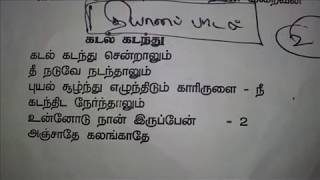 தியானப் பாடல்
கடல் கடந்து
கடல் கடந்து சென்றாலும்
தீ நடுவே நடந்தாலும்
புயல் சூழ்ந்து எழுந்திடும் காரிருளை - நீ
கடந்திட நேர்ந்தாலும்
உன்னோடு நான் இருப்பேன் - 2
அஞ்சாதே கலங்காதே